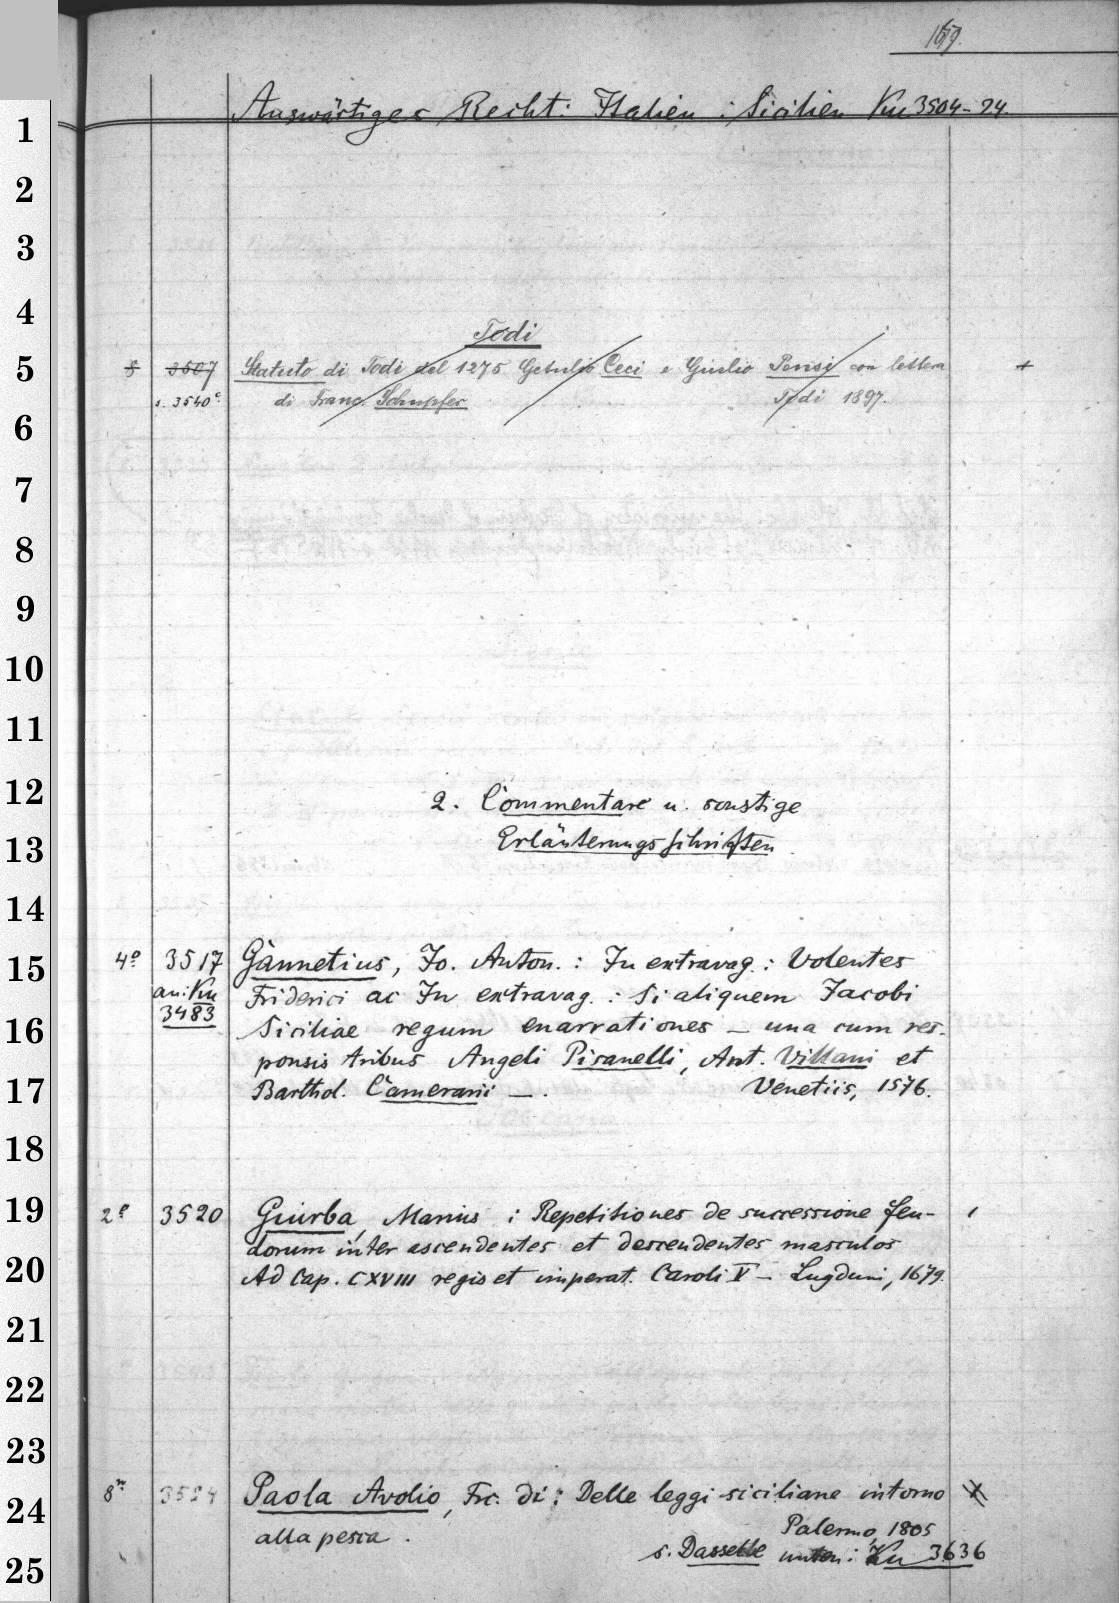 169.
Auswärtiges Recht: Italien: Sicilien Ku 3504-24.
1
2
3
4
Todi
5 8 3507 Statuto di Todi del 1275 Getulio Ceci e Giulio Pensi con lettera +
s. 3540c di Franc. Schupfer Todi 1897.
6
7
8
9
10
11
12 2. Commentare u. sonstige
13 Erläuterungsschriften
14
15 4o 3517 Gannetius, Jo. Anton.: In extravag.: Volentes
an: Ku Friderici ac In extravag.: Si aliquem Jacobi
16 3483 Siciliae regum enarrationes — una cum res-
ponsis tribus Angeli Piranelli, Ant. Villani et
17 Barthol. Camerarii —. Venetiis, 1576.
18
19 2o 3520 Giurba, Marius: Repetitiones de successione feu-
dorum inter ascendentes et descendentes masculos
20 Ad Cap. CXVIII regis et imperat. Caroli V — Lugduni, 1679.
21
22
23
24 8o 3524 Paola Avolio, Frc. di: Delle leggi siciliane intorno
alla pesca. Palermo, 1805
25 s. Dasselbe unten: Ku 3636